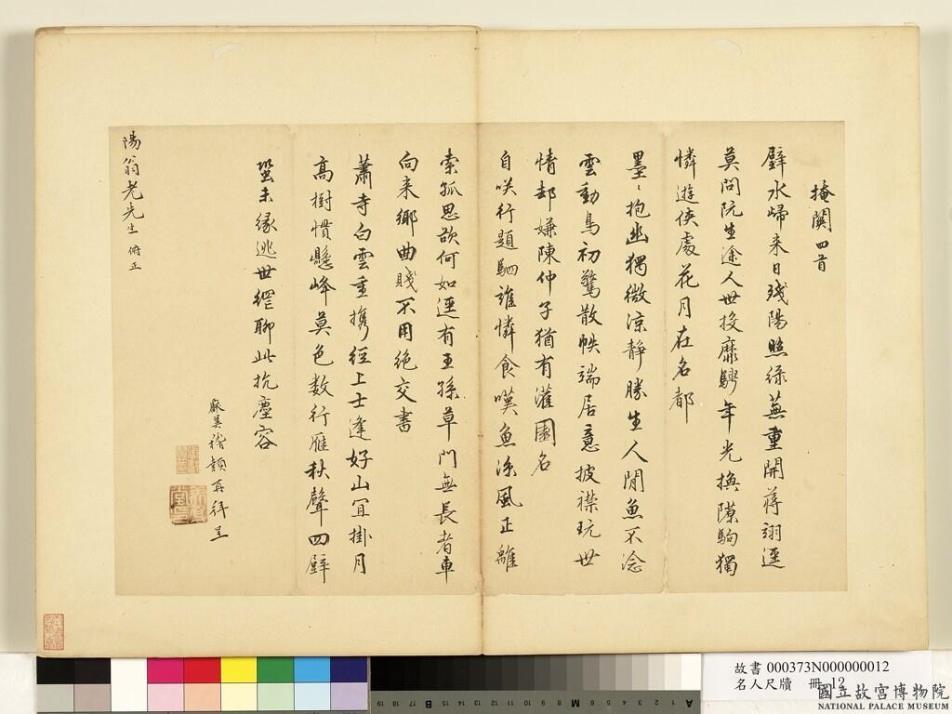 掩關四首
璧水歸來日殘陽照綠蕪重開蔣詡逕
莫問阮生途人世投靡騁年光換隙駒獨
憐遊俠處花月在名都
墨〻抱幽獨微涼靜勝生人閒魚不淰
雲動鳥初驚散帙端居意披襟玩世
情却嫌陳仲子猶有灌園名
自咲行題駟誰憐食嘆魚涼風正離
索孤思欲何如逕有王孫草門無長者車
向來鄉曲賤不用絕交書
蕭寺白雲重攜經上士逢好山宜掛月
高樹慣懸峰莫色數行雁秋聲四壁
蛩未緣逃世網聊此抗塵容
稽顙再拜呈
陽翁老先生 俯正
故書 000373N000000012
名人尺牘 冊 12
國立故宮博物院
NATIONAL PALACE MUSEUM